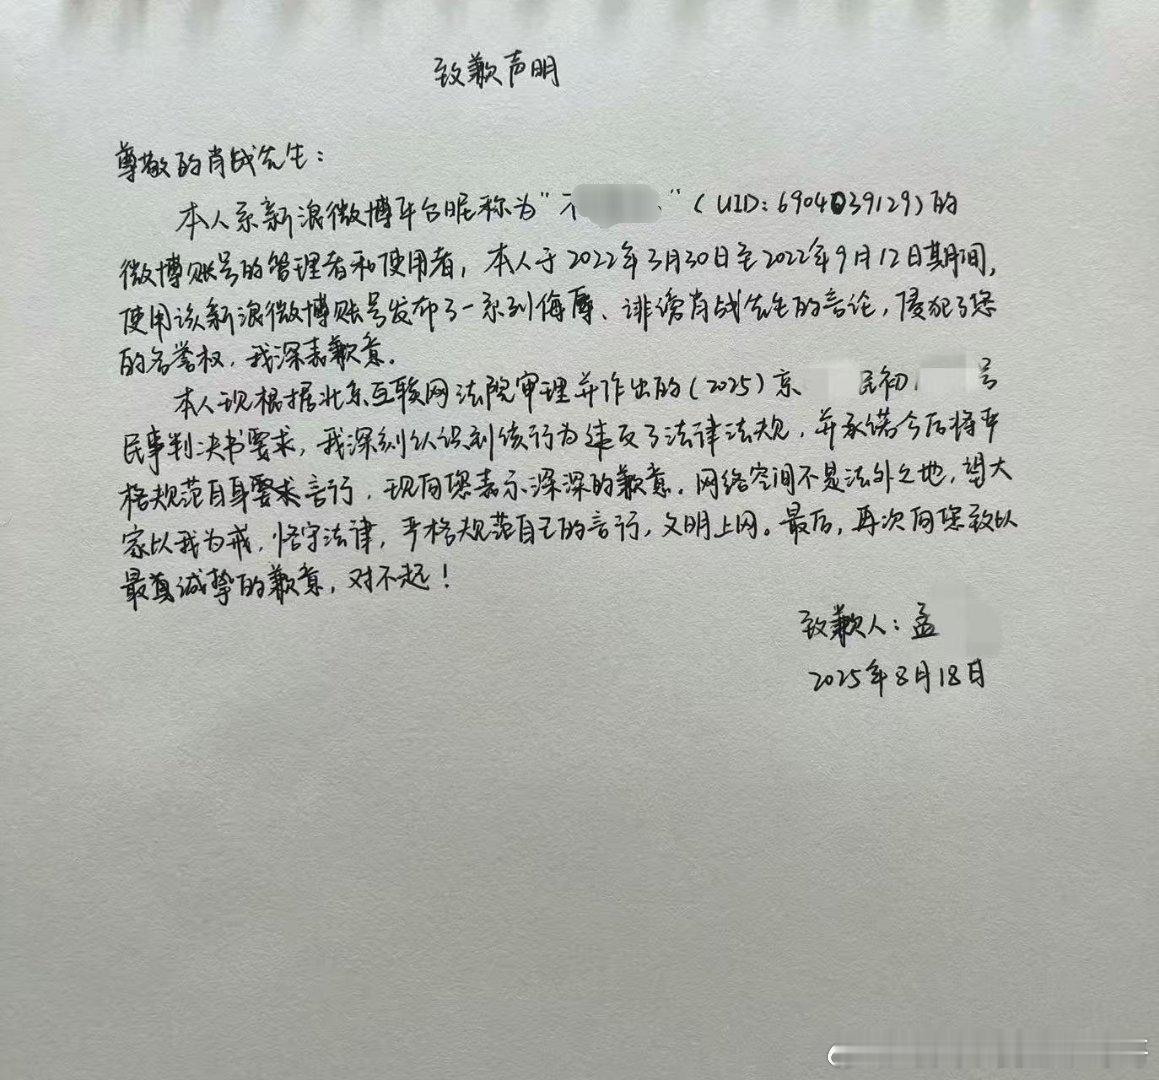 致歉声明
尊敬的肖战先生：
本人系新浪微博平台昵称为“不 ”（UID：6904039129）的
微博账号的管理者和使用者，本人于2022年3月30日至2022年9月12日期间，
使用该新浪微博账号发布了一系列侮辱、诽谤肖战先生的言论，侵犯了您
的名誉权，我深表歉意。
本人现根据北京互联网法院审理并作出的（2025）京 民初 号
民事判决书要求，我深刻认识到该行为违反了法律法规，并承诺今后将严
格规范自身要求言行，现向您表示深深的歉意。网络空间不是法外之地，望大
家以我为戒，恪守法律，严格规范自己的言行，文明上网。最后，再次向您致以
最真诚挚的歉意，对不起！
致歉人：孟
2025年8月18日